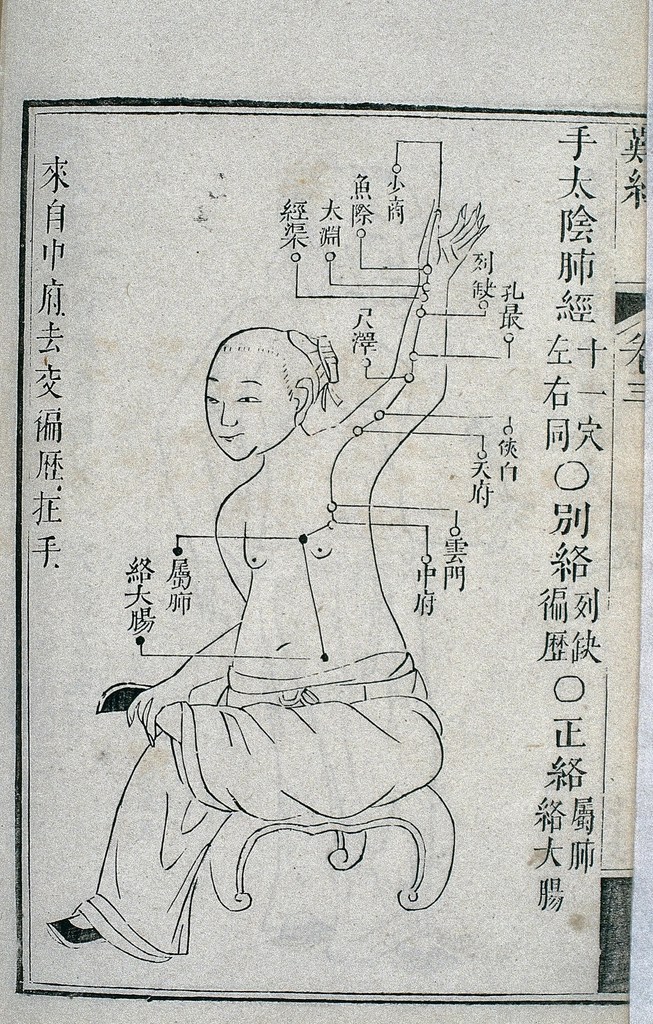 卷三
手太陰肺經十一穴左右同〇別絡列缺徧歷〇正絡屬肺絡大腸
少商
魚際
太淵
經渠
孔最
列缺
尺澤
俠白
天府
雲門
中府
屬肺
絡大腸
來自中府去交徧歷在手